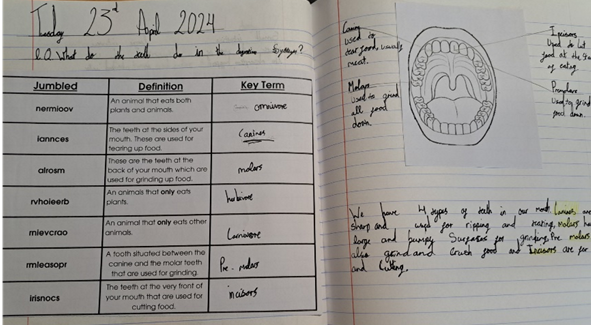 Tuesday 23rd April 2024
L.O. What do the teeth do in the digestive system?
Jumbled Definition Key Term
nermioov An animal that eats both plants and animals. omnivore
iannces The teeth at the sides of your mouth. These are used for tearing up food. Canines
alrosm These are the teeth at the back of your mouth which are used for grinding up food. molars
rvhoieerb An animals that only eats plants. herbivore
mievcrao An animal that only eats other animals. Carnivore
rmleasopr A tooth situated between the canine and the molar teeth that are used for grinding. Pre-molars
irisnocs The teeth at the very front of your mouth that are used for cutting food. incisors
Canine
used to
tear food, usually
meat.
Molars
used to grind
all food
down.
Incisors
Used to cut
food at the
of eating
Premolars
Used to grind
food down.
We have 4 types of teeth in our mouth. Canines are
sharp and used for ripping and tearing, molars have
large and bumpy surfaces for grinding, Pre molars
also grind and crush food and incisors are for
and cutting.